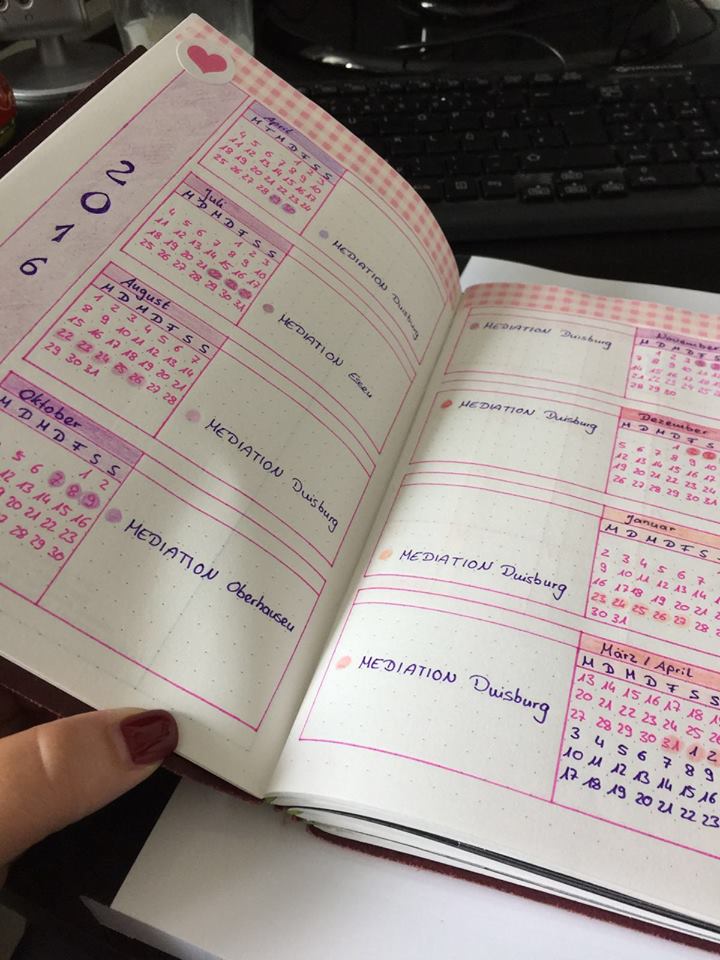 2
0
1
6
April
M T M D F S S
1 2 3
4 5 6 7 8 9 10
11 12 13 14 15 16 17
18 19 20 21 22 23 24
25 26 27 28 29 30
MEDIATION Duisburg
Juli
M D M D F S S
1 2 3
4 5 6 7 8 9 10
11 12 13 14 15 16 17
18 19 20 21 22 23 24
25 26 27 28 29 30 31
MEDIATION Essen
August
M D M D F S S
1 2 3 4 5 6 7
8 9 10 11 12 13 14
15 16 17 18 19 20 21
22 23 24 25 26 27 28
29 30 31
MEDIATION Duisburg
Oktober
M D M D F S S
1 2
5 6 7 8 9
12 13 14 15 16
19 20 21 22 23
27 28 29 30
MEDIATION Oberhausen
MEDIATION Duisburg
November
M D M D F S
1 2 3
7 8 9 10 11
14 15 16 17 18
21 22 23 24 25
28 29 30
MEDIATION Duisburg
Dezember
M D M D F S
1 2 3
5 6 7 8 9 10
12 13 14 15 16 17
19 20 21 22 23 24
26 27 28 29 30 31
MEDIATION Duisburg
Januar
M D M D F S
2 3 4 5 6 7
9 10 11 12 13
16 17 18 19 20 21
23 24 25 26 27 28
30 31
MEDIATION Duisburg
März / April
M D M D F S S
13 14 15 16 17 18
20 21 22 23 24 25
27 28 29 30 31 1 2
3 4 5 6 7 8 9
10 11 12 13 14 15 16
17 18 19 20 21 22 23